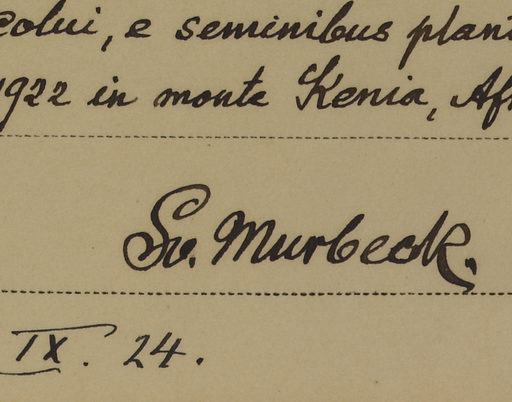 colui, e seminibus plant
1922 in monte Kenia, Af
Sv. Murbeck.
IX. 24.